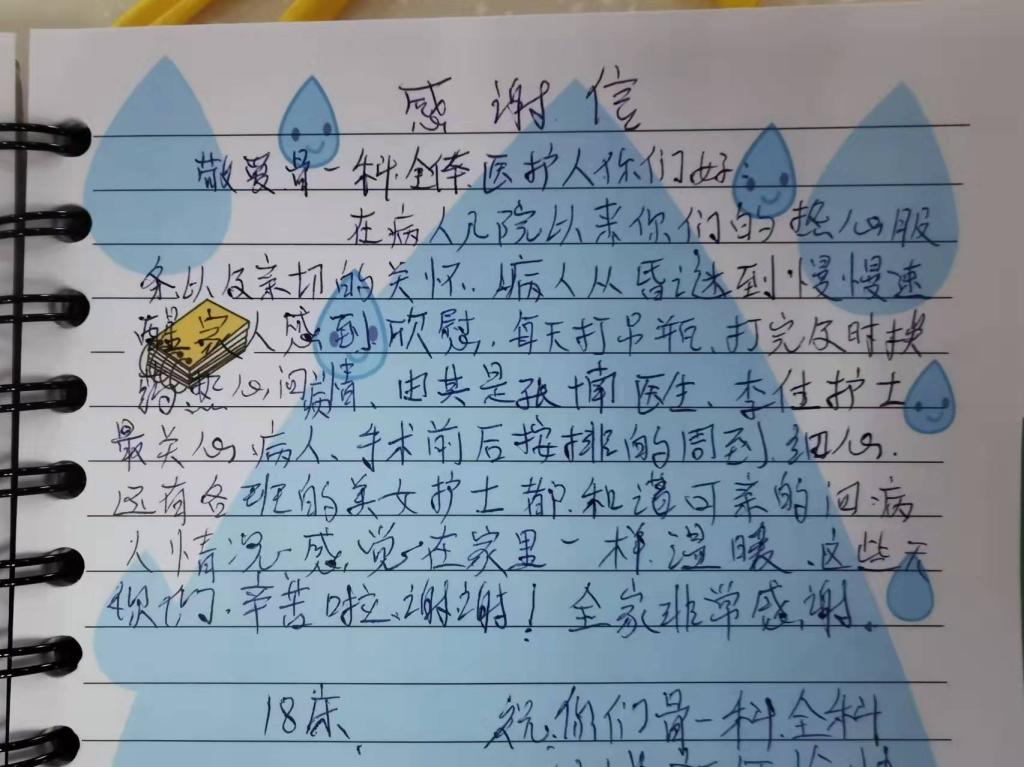 感谢信
敬爱骨一科全体医护人你们好:
在病人入院以来你们的热心服
务以及亲切的关怀.病人从昏迷到慢慢速
醒家人感到欣慰,每天打吊瓶、打完及时换
药热心问病情、由其是张楠医生、李佳护士
最关心病人、手术前后按排的周到细心.
还有各班的美女护士都和谐可亲的问病
人情况,感觉在家里一样温暖、这些天
你们辛苦啦、谢谢!全家非常感谢.
18床 祝:你们骨一科全科